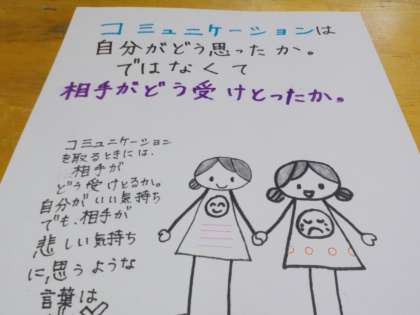 コミュニケーションは
自分がどう思ったか。
ではなくて
相手がどう受けとったか。
コミュニケーション
を取るときには、
相手が
どう受けとるか。
自分がいい気持ち
でも、相手が
悲しい気持ち
に思うような
言葉は